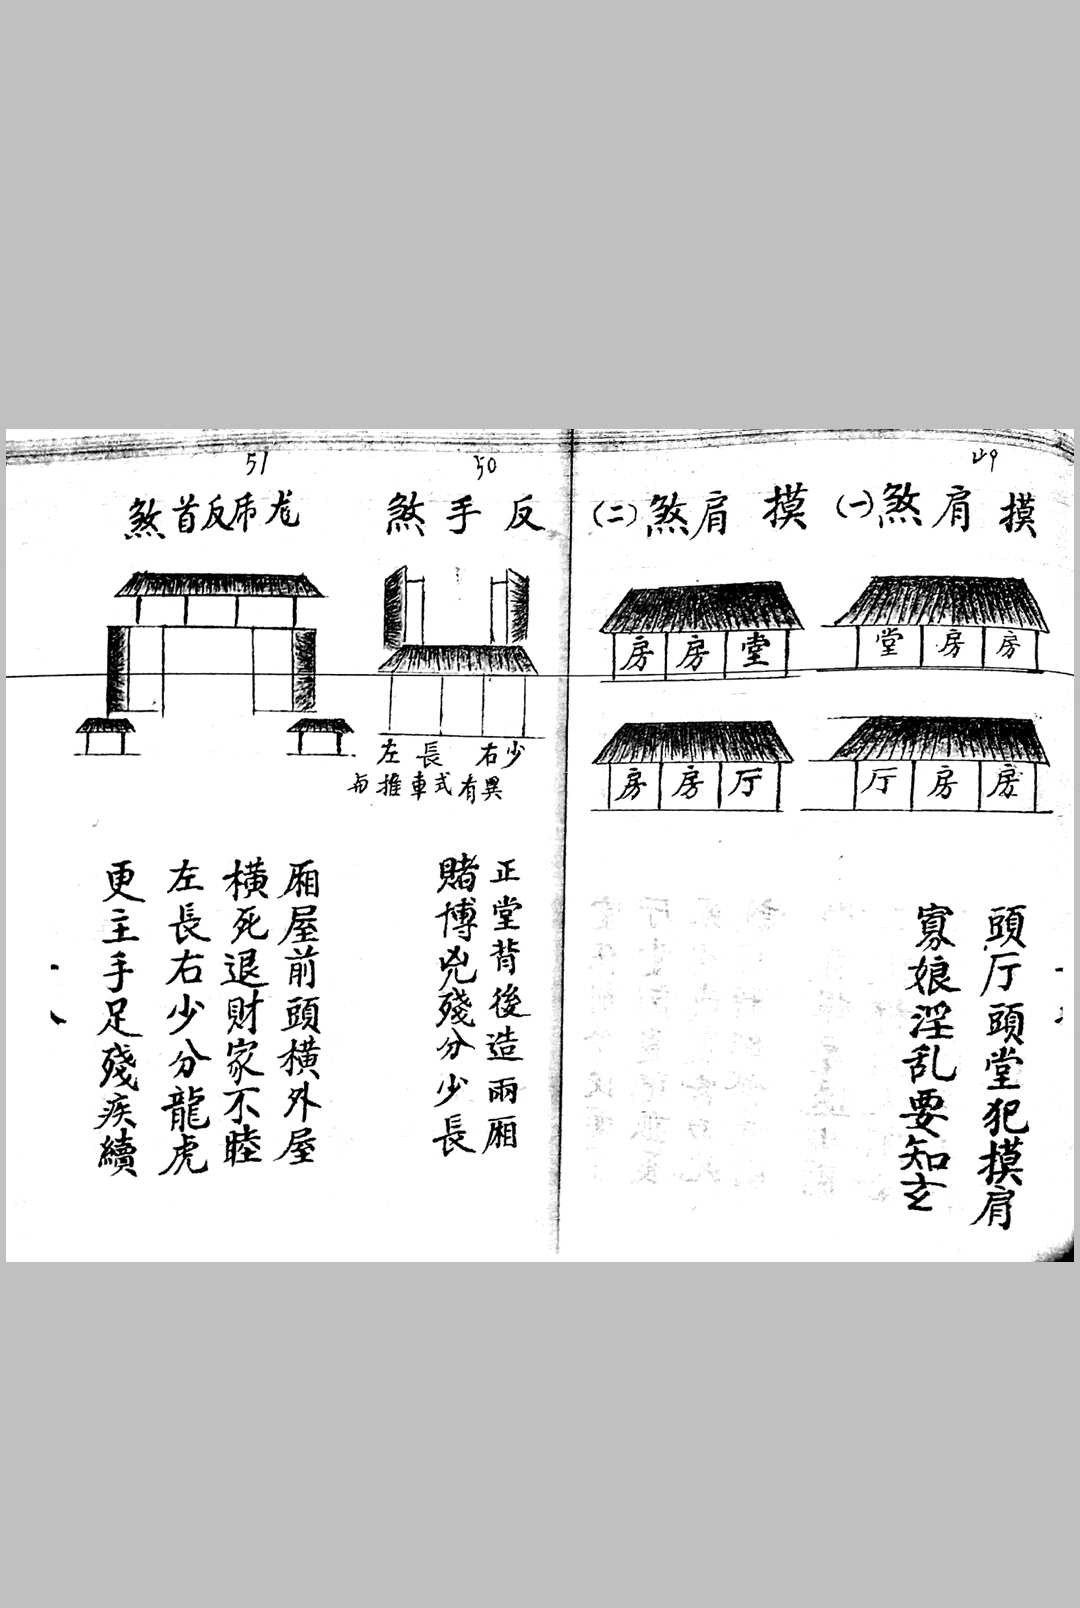 49
摸肩煞(一)
堂房房
厅房房
摸肩煞(二)
房房堂
房房厅
頭厅頭堂犯摸肩
寡娘淫乱要知玄
50
反手煞
左長 右少
与推車式有異
正堂背後造兩厢
賭博兇殘分少長
51
龙虎反首煞
厢屋前頭橫外屋
橫死退財家不睦
左長右少分龍虎
更主手足殘疾續